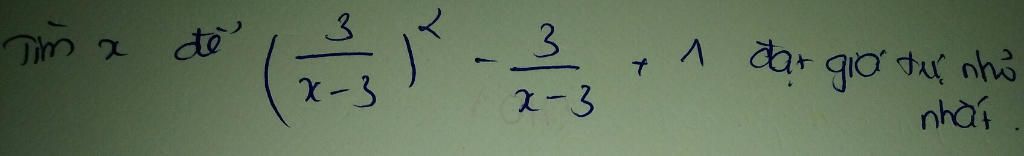 Tìm x để (3/(x-3))² - 3/(x-3) + 1 đạt giá trị nhỏ
nhất.